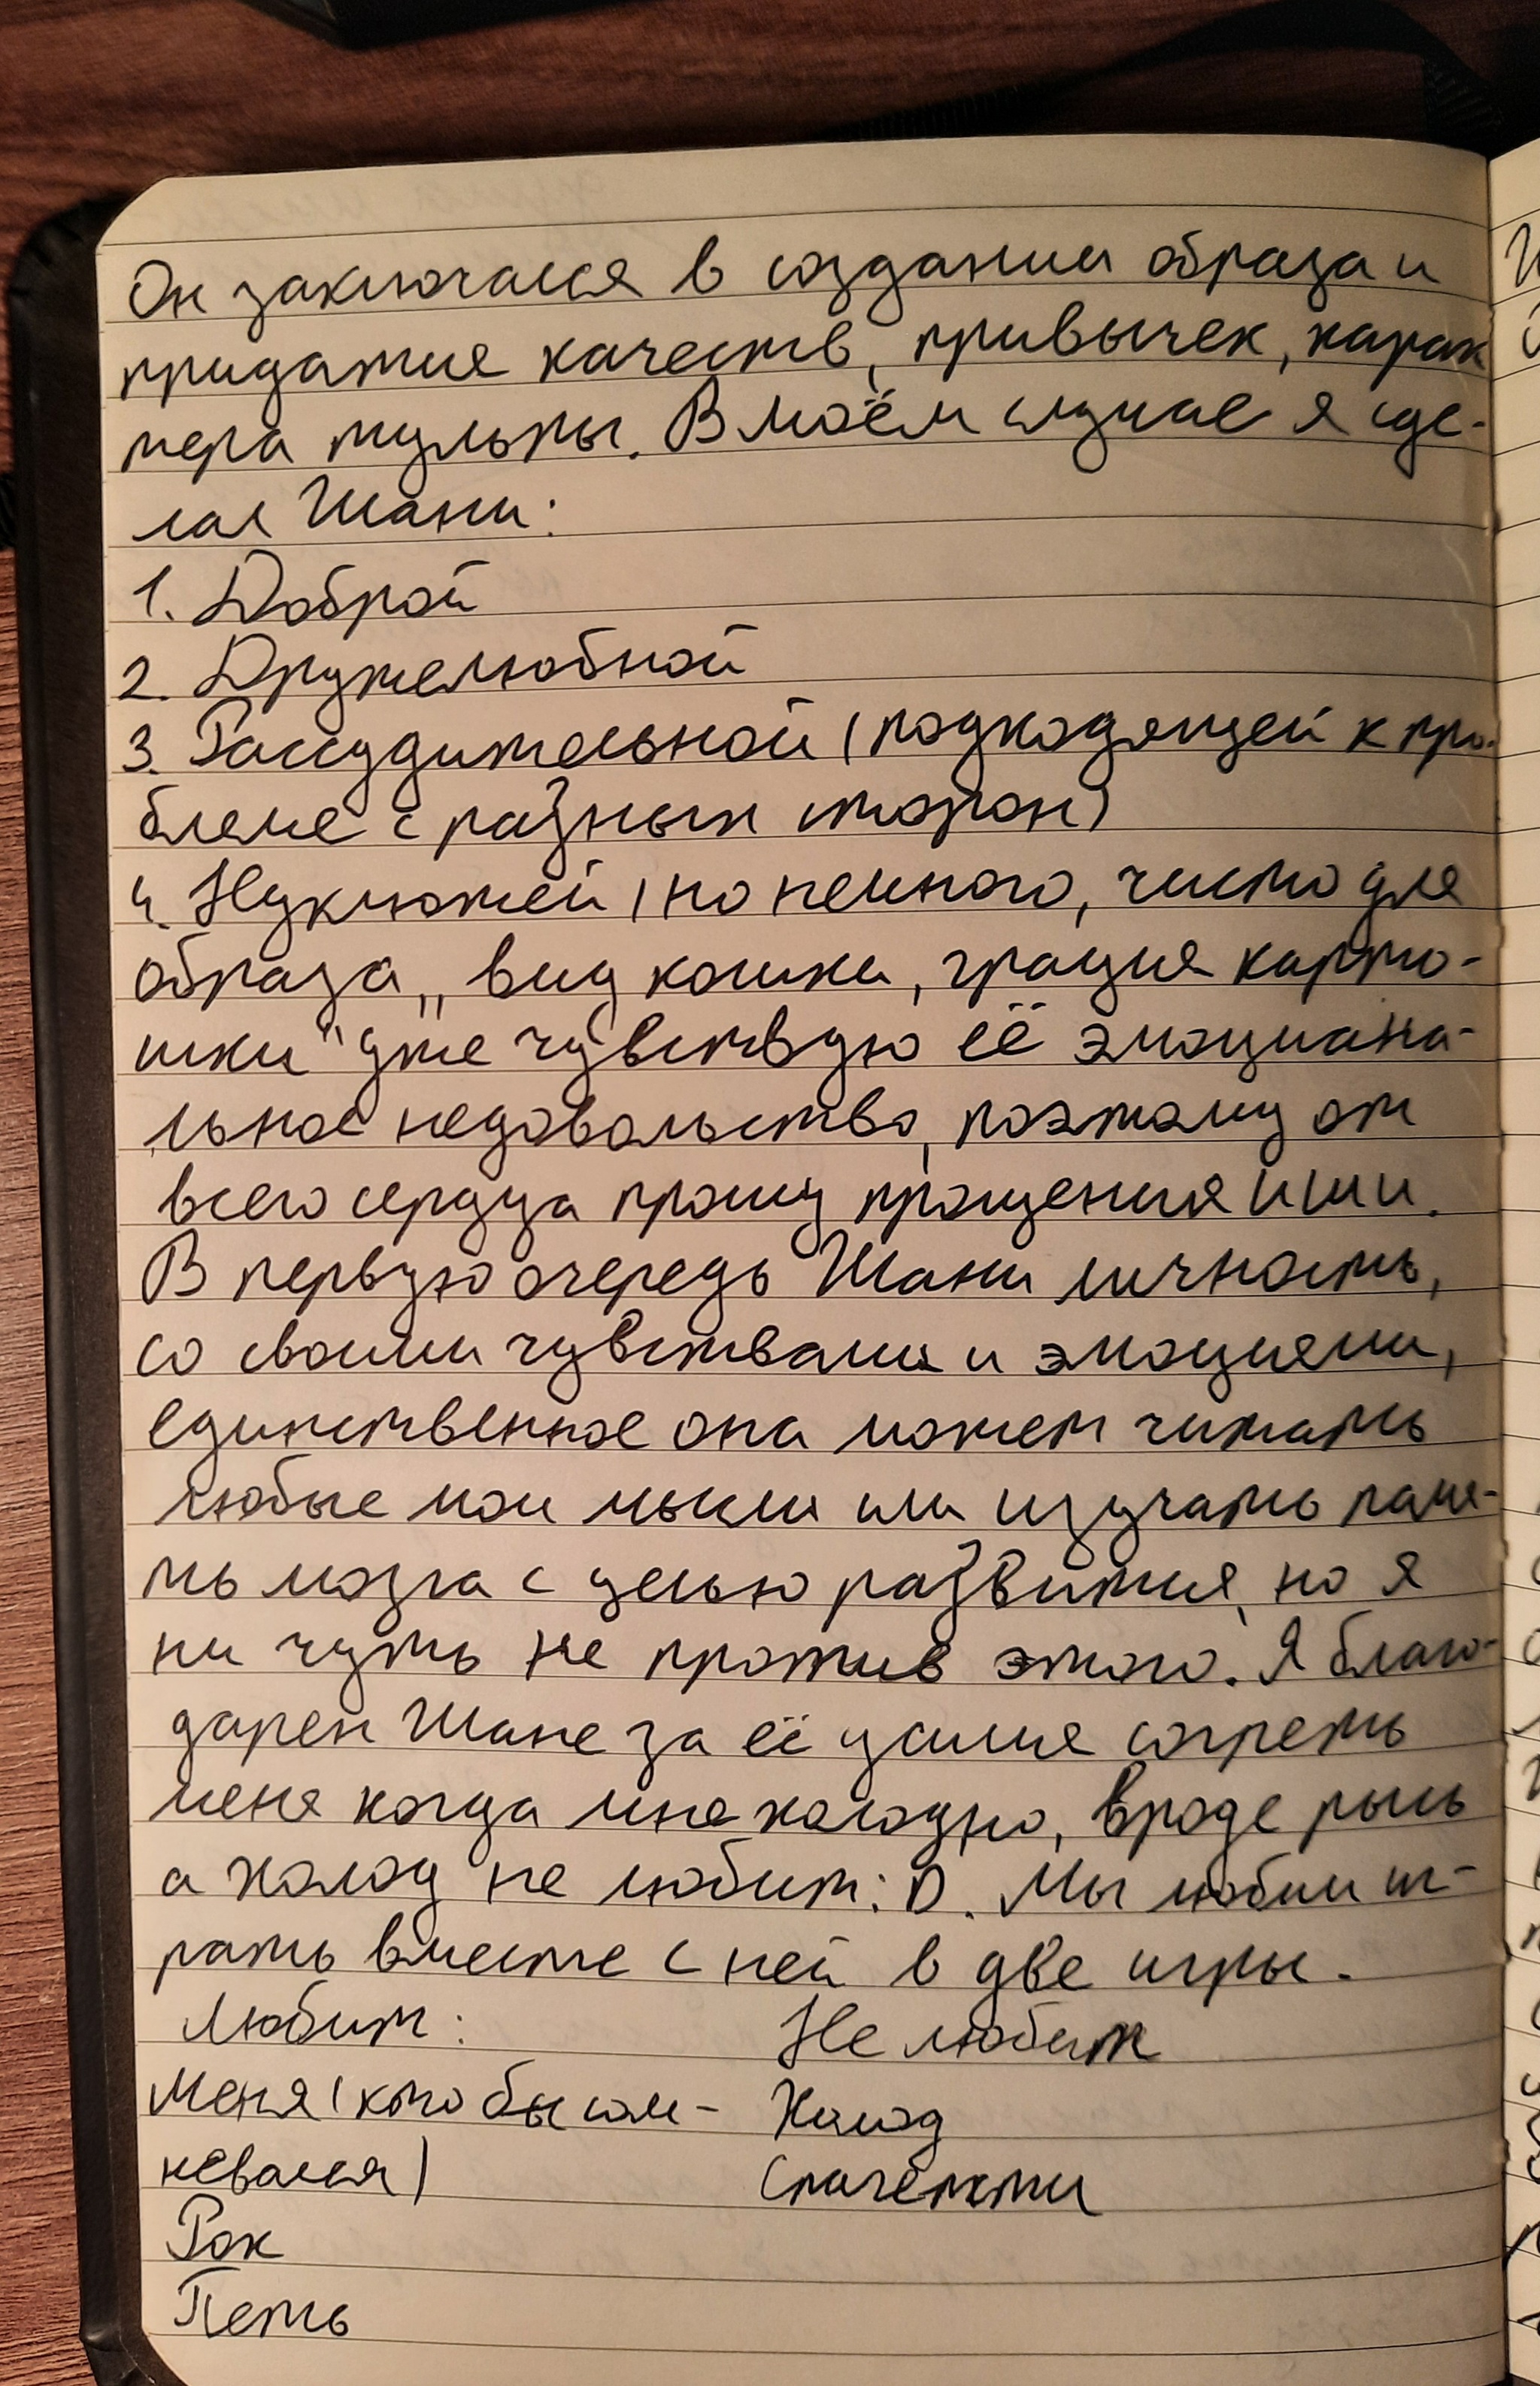 Он заключался в создании образа и
придатия качеств, привычек, харак
тера тульпы. В моём случае я сде-
лал Шани:
1. Доброй
2. Дружелюбной
3. Рассудительной (подходящей к про-
блеме с разных сторон)
4. Неуклюжей (но немного, чисто для
образа „вид кошки, грация карто-
шки" уже чувствую её эмоциана-
льное недовольство, поэтому от
всего сердца прошу прощения
В первую очередь Шани личность,
со своими чувствами и эмоциями,
единственное она может читать
любые мои мысли или изучать памя-
ть мозга с целью развития, но я
ни чуть не против этого. Я благо-
дарен Шане за её усилие согреть
меня когда мне холодно, вроде рысь
а холод не любит :D. Мы любим иг-
рать вместе с ней в две игры.
Любит: Не любит
Меня (кто бы сом- Холод
невался) Спагетти
Рок
Петь